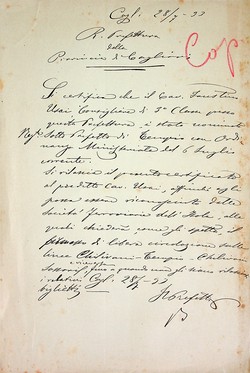 Cagl: 28/7-22
Cop
R. Prefettura
della
Provincia di Cagliari
Si certifica che il Cav. Faustino
Usai Consigliere di 3ª Classe presso
questa Prefettura, è stato nominato
Regº Sotto Prefetto di Tempio con Ordi
nanza Ministeriale del 6 luglio
corrente.
Si rilascia il presente certificato
al predetto Cav. Usai, affinchè egli
possa essere riconosciuto dalla
Società Ferroviaria dell'Isola, alle
quali chiederà come gli spetta, il
permesso di libera circolazione sulle
linee Chilivani-Tempio - Chilivani
Sassari, fino a quando non gli siano rilasciati
i relativi biglietti. Cagl. 28/7-22
Il Prefetto